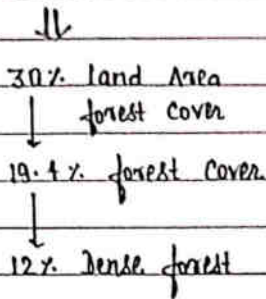 30% land Area
forest cover
19.4% forest cover
12% Dense forest